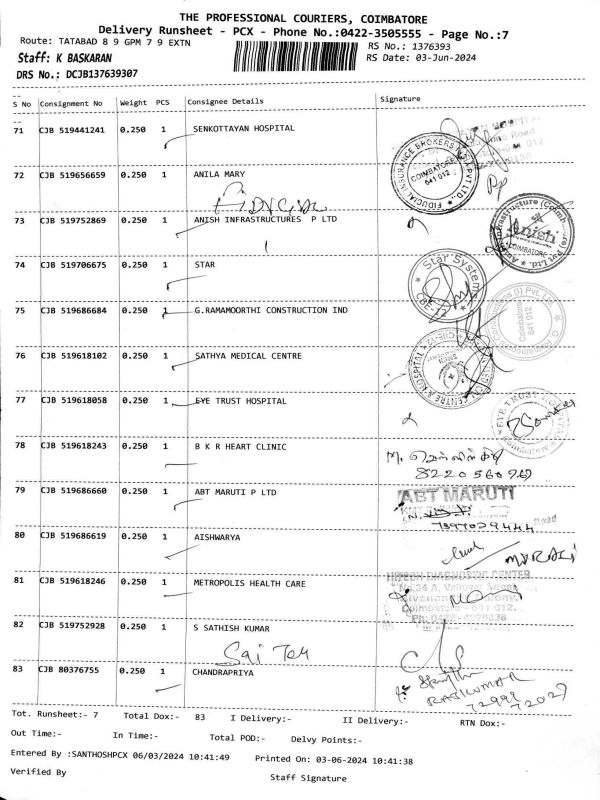 THE PROFESSIONAL COURIERS, COIMBATORE
Delivery Runsheet - PCX - Phone No.:0422-3505555 - Page No.:7
Route: TATABAD 8 9 GPM 7 9 EXTN
RS No.: 1376393
Staff: K BASKARAN
RS Date: 03-Jun-2024
DRS No.: DCJB137639307
S No Consignment No Weight PCS Consignee Details Signature
71 CJB 519441241 0.250 1 SENKOTTAYAN HOSPITAL
FIDUCIAL INSURANCE BROKERS INDIA PVT LTD
COIMBATORE 641 012
72 CJB 519656659 0.250 1 ANILA MARY
73 CJB 519752869 0.250 1 ANISH INFRASTRUCTURES P LTD
Anish
COIMBATORE
74 CJB 519706675 0.250 1 STAR
Star Systems
CBE-12
75 CJB 519686684 0.250 1 G.RAMAMOORTHI CONSTRUCTION IND
Coimbatore
641 012
76 CJB 519618102 0.250 1 SATHYA MEDICAL CENTRE
77 CJB 519618058 0.250 1 EYE TRUST HOSPITAL
EYE TRUST HOSPITAL
Coimbatore
78 CJB 519618243 0.250 1 B K R HEART CLINIC
79 CJB 519686660 0.250 1 ABT MARUTI P LTD
ABT MARUTI
7397029444
80 CJB 519686619 0.250 1 AISHWARYA
MURALI
81 CJB 519618246 0.250 1 METROPOLIS HEALTH CARE
HITECH DIAGNOSTIC CENTER
Coimbatore - 641 012.
82 CJB 519752928 0.250 1 S SATHISH KUMAR
Sai
83 CJB 80376755 0.250 1 CHANDRAPRIYA
RAJKUMAR
72999
72027
Tot. Runsheet:- 7 Total Dox:- 83 I Delivery:- II Delivery:- RTN Dox:-
Out Time:- In Time:- Total POD:- Delvy Points:-
Entered By :SANTHOSHPCX 06/03/2024 10:41:49 Printed On: 03-06-2024 10:41:38
Verified By
Staff Signature